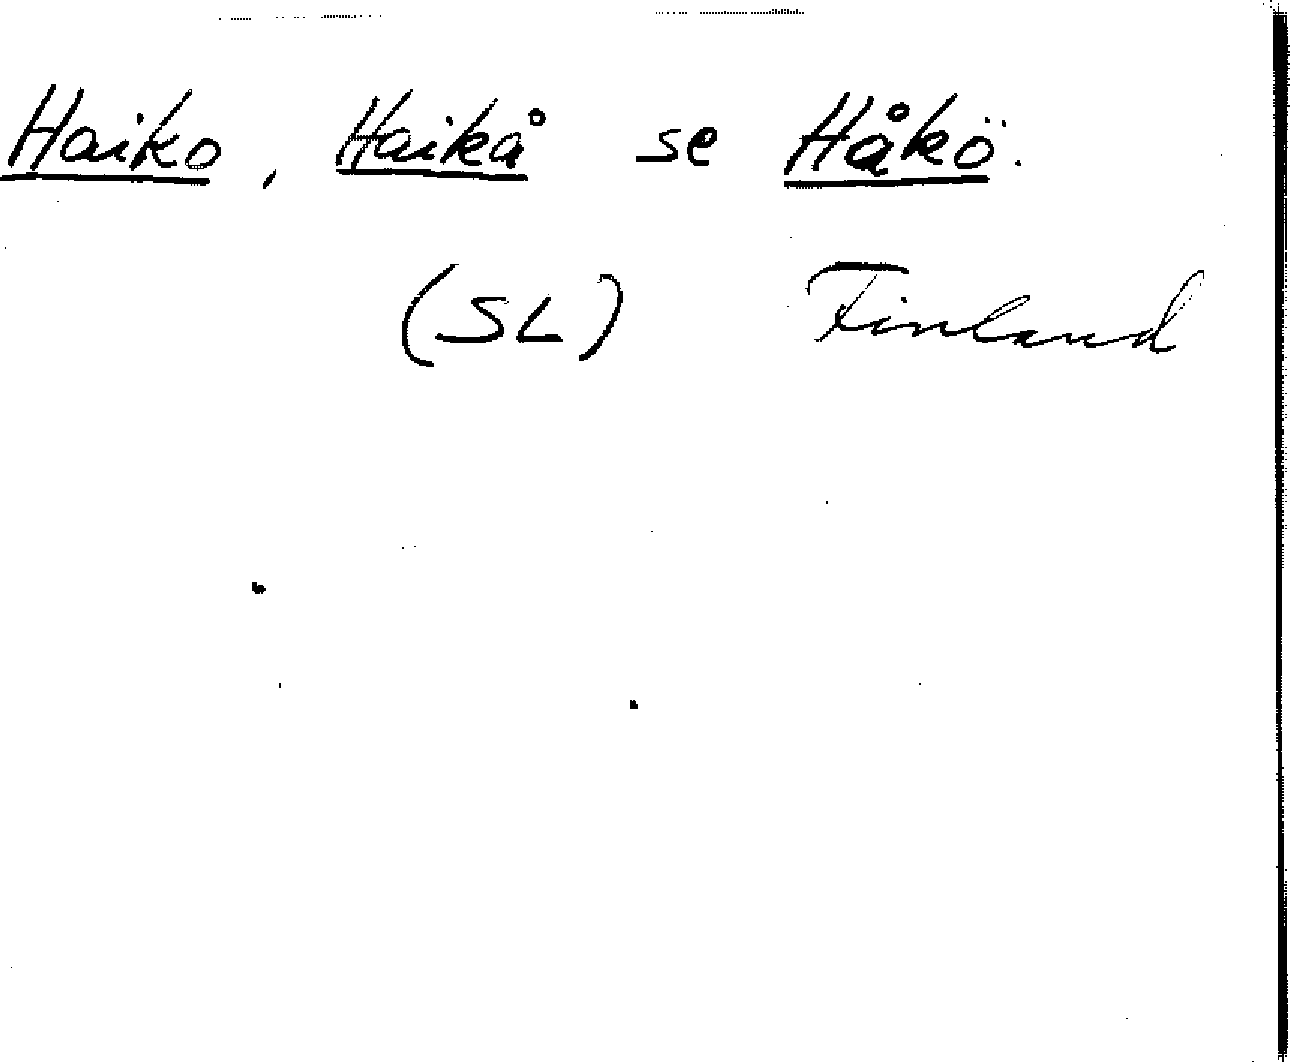 Haiko, Haikå se Håkö.
(SL) Finland